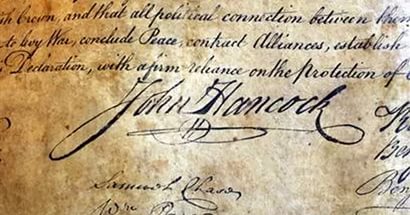 ish Crown, and that all political connection between them
to levy War, conclude Peace, contract Alliances, establish
Declaration, with a firm reliance on the protection of
John Hancock
Samuel Chase
Wm
Ben